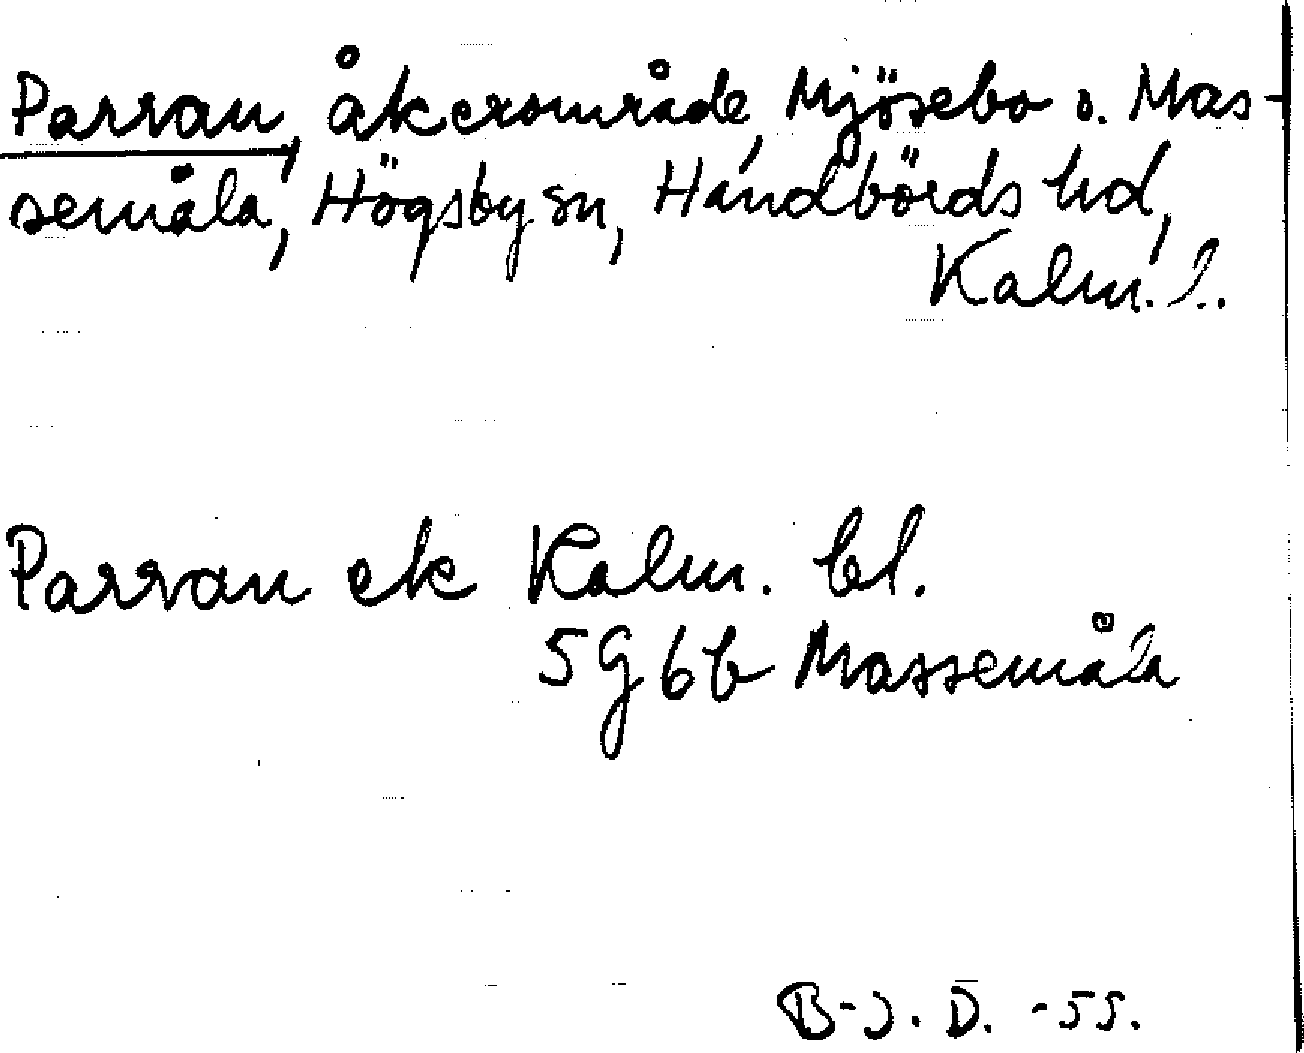 Parran, åkerområde, Mjösebo o. Mas-
semåla, Högsby sn, Handbörds hd,
Kalm. l.
Parran ek Kalm. bl.
5 G 6 b Massemåla
B-J. D. -55.